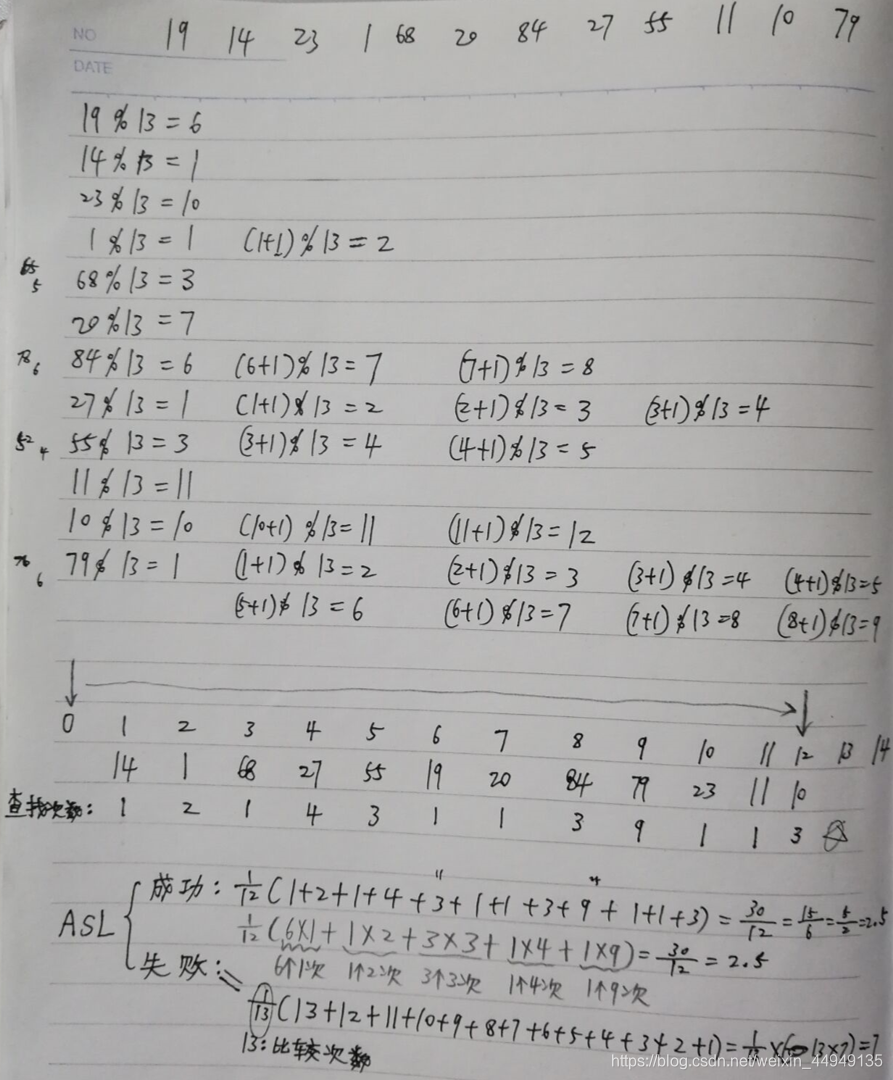 NO 19 14 23 1 68 20 84 27 55 11 10 79
DATE
19 % 13 = 6
14 % 13 = 1
23 % 13 = 10
1 % 13 = 1 (1+1) % 13 = 2
65 5 68 % 13 = 3
20 % 13 = 7
78 6 84 % 13 = 6 (6+1) % 13 = 7 (7+1) % 13 = 8
27 % 13 = 1 (1+1) % 13 = 2 (2+1) % 13 = 3 (3+1) % 13 = 4
52 4 55 % 13 = 3 (3+1) % 13 = 4 (4+1) % 13 = 5
11 % 13 = 11
10 % 13 = 10 (10+1) % 13 = 11 (11+1) % 13 = 12
6 79 % 13 = 1 (1+1) % 13 = 2 (2+1) % 13 = 3 (3+1) % 13 = 4 (4+1) % 13 = 5
(5+1) % 13 = 6 (6+1) % 13 = 7 (7+1) % 13 = 8 (8+1) % 13 = 9
0 1 2 3 4 5 6 7 8 9 10 11 12 13 14
14 1 68 27 55 19 20 84 79 23 11 10
查找次数: 1 2 1 4 3 1 1 3 9 1 1 3
ASL
成功: 1/12 (1+2+1+4+3+1+1+3+9+1+1+3) = 30/12 = 15/6 = 5/2 = 2.5
1/12 (6×1+1×2+3×3+1×4+1×9) = 30/12 = 2.5
失败: 6个1次 1个2次 3个3次 1个4次 1个9次
= 1/13 (13+12+11+10+9+8+7+6+5+4+3+2+1) = 1/13 × (13×7) = 7
13: 比较次数
https://blog.csdn.net/weixin_44949135